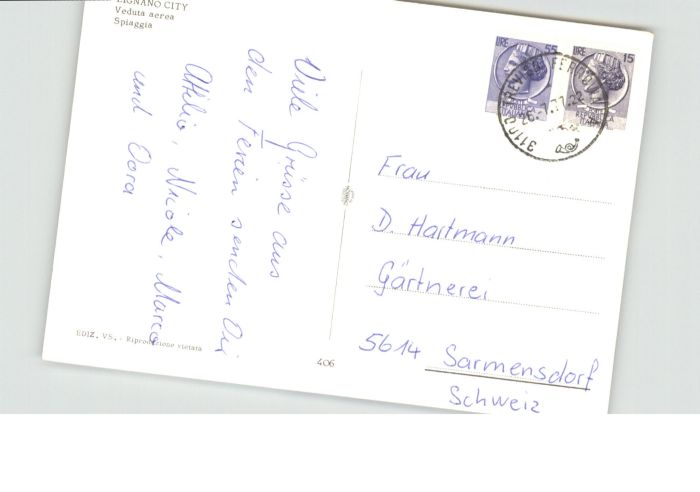 LIGNANO CITY
Veduta aerea
Spiaggia
Viele Grüsse aus
den Ferien senden Dir
Attilio, Nicole, Marco
und Dora
EDIZ. VS. - Riproduzione vietata
406
LIRE 55
LIRE 15
Frau
D. Hartmann
Gärtnerei
5614 Sarmensdorf
Schweiz